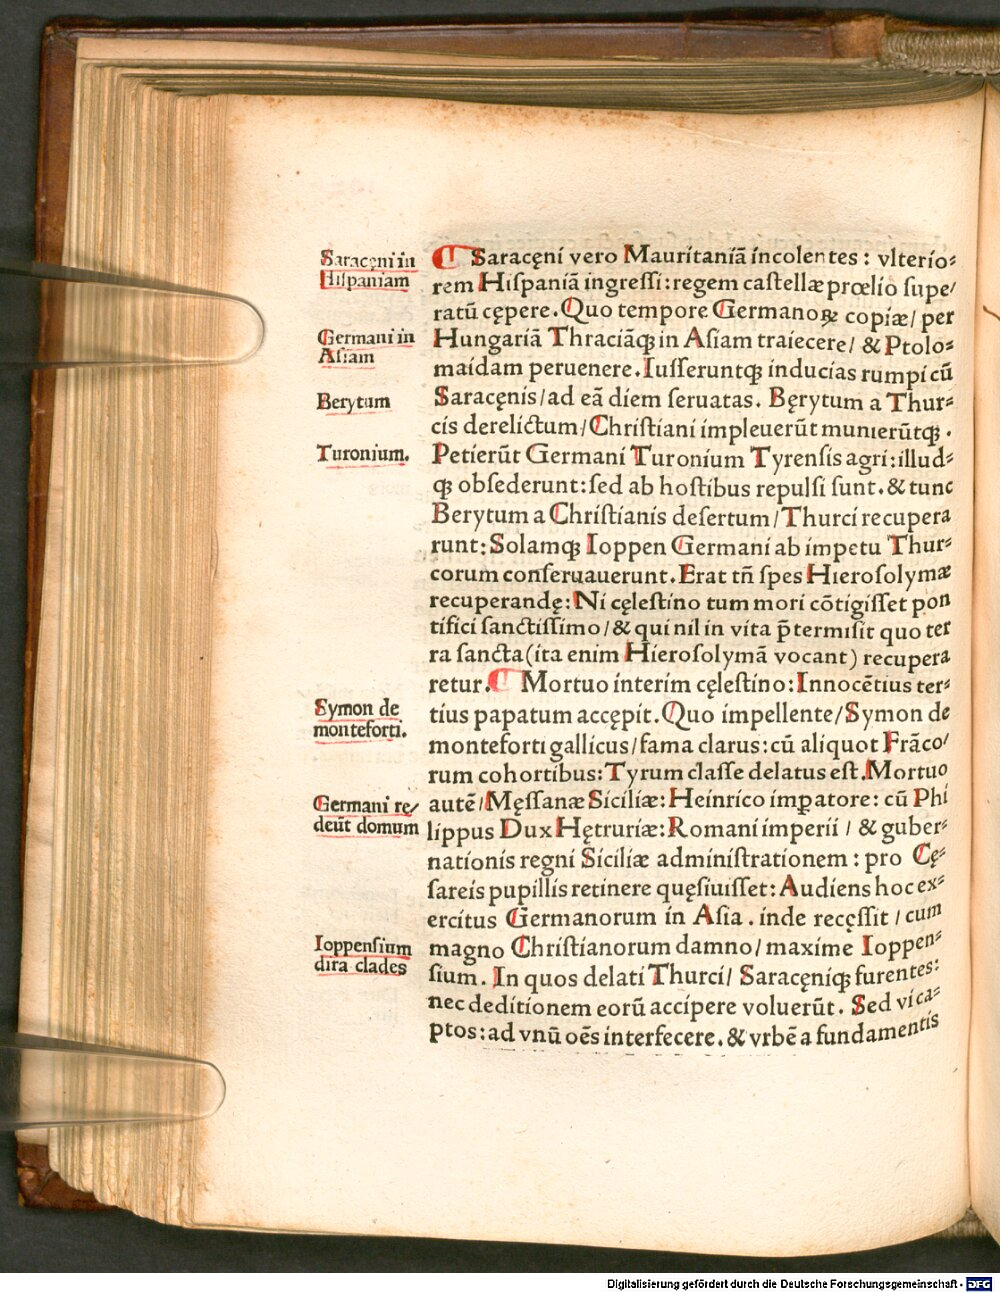 Saracęni in
Hiſpaniam
Germani in
Aſiam
Berytum
Turonium.
Symon de
monteforti.
Germani rę/
deūt domum
Ioppenſium
dira clades
¶ Saracęni vero Mauritaniā incolentes : vlterio⸗
rem Hiſpaniā ingreſſi: regem caſtellæ prœlio ſupe/
ratū cępere. Quo tempore Germanoꝝ copiæ/ per
Hungariā Thraciāqꝫ in Aſiam traiecere/ & Ptolo⸗
maidam peruenere. Iuſſeruntqꝫ inducias rumpi cū
Saracęnis/ ad eā diem ſeruatas. Bęrytum a Thur⸗
cis derelictum/ Chriſtiani impleuerūt munierūtqꝫ .
Petierūt Germani Turonium Tyrenſis agri: illud⸗
qꝫ obſederunt: ſed ab hoſtibus repulſi ſunt. & tunc
Berytum a Chriſtianis deſertum/ Thurci recupera
runt: Solamqꝫ Ioppen Germani ab impetu Thur⸗
corum conſeruauerunt. Erat tñ ſpes Hieroſolymæ
recuperandę: Ni cęleſtino tum mori cōtigiſſet pon
tifici ſanctiſſimo/ & qui nil in vita p̄termiſit quo ter
ra ſancta (ita enim Hieroſolymā vocant) recupera
retur. ¶ Mortuo interim cęleſtino: Innocētius ter⸗
tius papatum accępit. Quo impellente/ Symon de
monteforti gallicus/ fama clarus: cū aliquot Frāco/
rum cohortibus: Tyrum claſſe delatus eſt. Mortuo
autē/ Męſſanæ Siciliæ: Heinrico imꝑatore: cū Phi
lippus Dux Hętruriæ: Romani imperii / & guber⸗
nationis regni Siciliæ adminiſtrationem : pro Cę⸗
ſareis pupillis retinere quęſiuiſſet: Audiens hoc ex⸗
ercitus Germanorum in Aſia . inde recęſſit / cum
magno Chriſtianorum damno/ maxime Ioppen⸗
ſium. In quos delati Thurci/ Saracęniqꝫ furentes:
nec deditionem eorū accipere voluerūt. Sed vi ca⸗
ptos: ad vnū oēs interfecere. & vrbē a fundamentis
Digitalisierung gefördert durch die Deutsche Forschungsgemeinschaft - DFG